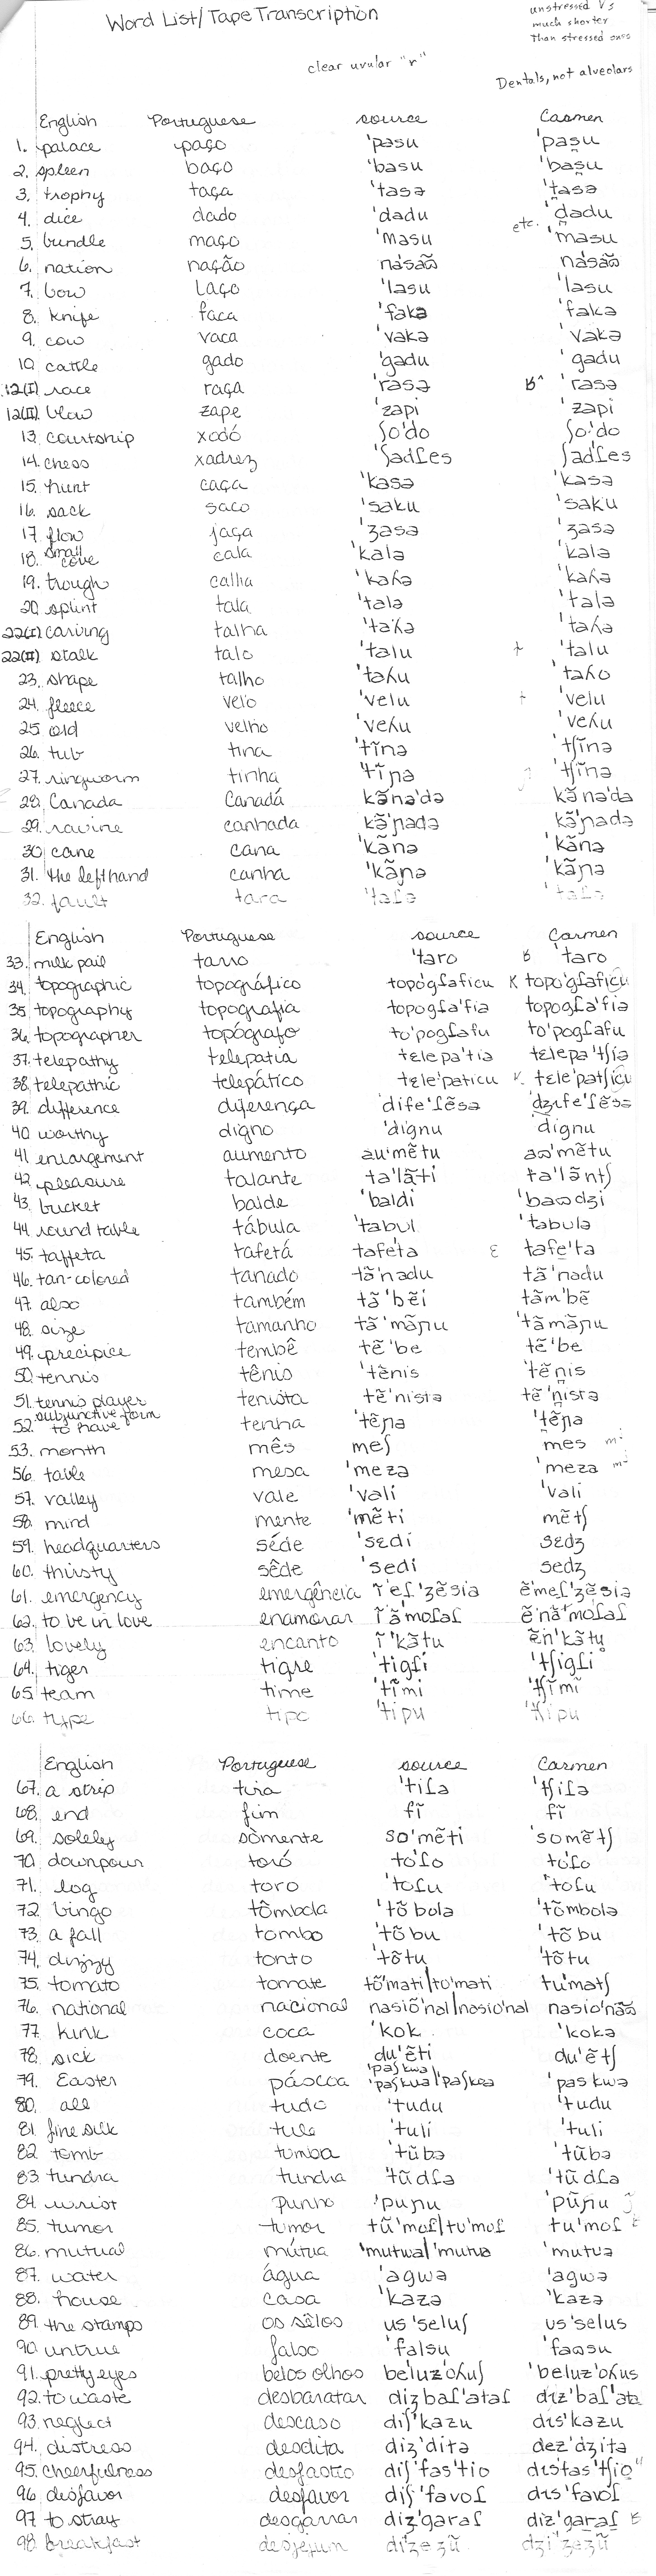 Word List/Tape Transcription
unstressed V's
much shorter
Than stressed ones
clear uvular "r"
Dentals, not alveolars
English Portuguese source Carmen
1. palace paço 'pasu 'pas̪u
2. spleen baço 'basu 'bas̪u
3. trophy taça 'tasə 't̪asə
4. dice dado 'dadu 'd̪adu
etc.
5. bundle maço 'masu 'masu
6. nation nação na'sãʊ̃ na'sãʊ̃
7. bow laço 'lasu 'lasu
8. knife faca 'fakə 'fakə
9. cow vaca 'vakə 'vakə
10. cattle gado 'gadu 'gadu
12(I) race raça 'rasə ʁ^ 'rasə
12(II) blow zape 'zapi 'zapi
13. courtship xodó ʃo'do ʃo'do
14. chess xadrez 'ʃadɾes ʃadɾes
15. hunt caça 'kasə 'kasə
16. sack saco 'saku 'saku
17. flow jaça 'ʒasə 'ʒasə
18. small cove cala 'kalə 'kalə
19. trough calha 'kaʎə 'kaʎə
20. splint tala 'talə 'talə
22(I) carving talha 'taʎə 'taʎə
22(II) stalk talo 'talu 'talu
23. shape talho 'taʎu 'taʎo
24. fleece velo 'velu 'velu
25. old velho 'veʎu 'veʎu
26. tub tina 'tĩnə 'tʃĩnə
27. ringworm tinha 'tĩɲə 'tʃĩnə
28. Canada Canadá kãna'də kãna'da
29. ravine canhada kã'ɲadə kã'ɲadə
30. cane cana 'kãnə 'kãnə
31. the left hand canha 'kãɲə 'kãɲə
32. fault tara 'taɾə 'taɾə
English Portuguese source Carmen
33. milk pail tarro 'taro ʁ 'taro
34. topographic topográfico topo'gɾaficu K topo'gɾaficu
35. topography topografia topogɾa'fia topogɾa'fia
36. topographer topógrafo to'pogɾafu to'pogɾafu
37. telepathy telepatia tɛlepa'tia tɛlepa'tʃia
38. telepathic telepático tɛle'paticu K. tɛle'patʃicu
39. difference diferença dife'ɾẽsa dʒife'ɾẽsə
40. worthy digno 'dignu 'dignu
41. enlargement aumento au'mẽtu aʊ'mẽtu
42. pleasure talante ta'lãti ta'lãntʃ
43. bucket balde 'baldi 'baʊdʒi
44. round table tábula 'tabul 'tabulə
45. taffeta tafetá tafe'ta ɛ tafe'ta
46. tan-colored tanado tã'nadu tã'nadu
47. also também tã'bẽi tãm'bẽ
48. size tamanho tã'mãɲu 'tãmãɲu
49. precipice tembê tẽ'be tẽ'be
50. tennis tênis 'tẽnis 'tẽn̪is
51. tennis player tenista tẽ'nistə tẽ'n̪istə
52. subjunctive form to have tenha 'tẽɲa 't̪ẽɲa
53. month mês meʃ mes
56. table mesa 'meza 'meza
57. valley vale 'vali 'vali
58. mind mente 'mẽti mẽtʃ
59. headquarters séde 'sɛdi sɛdʒ
60. thirsty sêde 'sedi sedʒ
61. emergency emergência ĩeɾ'ʒẽsia ẽmeɾ'ʒẽsia
62. to be in love enamorar ĩãmoɾaɾ ẽ'nãmoɾaɾ
63. lovely encanto ĩ'kãtu ẽn'kãtu̥
64. tiger tigre 'tigɾi 'tʃigɾi
65. team time 'tĩmi 'tʃĩmĩ
66. type tipo 'tipu 'tʃipu
English Portuguese source Carmen
67. a strip tira 'tiɾə 'tʃiɾə
68. end fim fĩ fĩ
69. solely sòmente so'mẽti 'somẽtʃ
70. downpour toró to'ɾo to'ɾo
71. log toro 'toɾu 'toɾu
72. bingo tômbola 'tõbola 'tõmbolə
73. a fall tombo 'tõbu 'tõbu
74. dizzy tonto 'tõtu 'tõtu
75. tomato tomate tõ'mati/to'mati tu'matʃ
76. national nacional nasiõ'nal/nasio'nal nasio'naʊ
77. kink coca 'kok 'kokə
78. sick doente du'ẽti du'ẽtʃ
79. Easter páscoa 'paʃkwa 'paʃkua/'paʃkoa 'paskwə
80. all tudo 'tudu 'tudu
81. fine silk tule 'tuli 'tuli
82. tomb tumba 'tũbə 'tũbə
83. tundra tundra 'tũdɾə 'tũdɾə
84. wrist punho 'puɲu 'pũɲu
85. tumor tumor tũ'moɾ/tu'moɾ tu'moɾ
86. mutual mútua 'mutwa/'mutua 'mutuə
87. water água 'agwə 'agwə
88. house casa 'kazə 'kazə
89. the stamps os sêlos us 'seluʃ us 'selus
90. untrue falso 'falsu 'faʊsu
91. pretty eyes belos olhos beluz'oʎuʃ 'beluz'oʎus
92. to waste desbaratar dizbaɾ'ataɾ diz'baɾ'ata
93. neglect descaso diʃ'kazu dis'kazu
94. distress desdita diz'ditə dez'dʒitə
95. cheerfulness desfastio diʃ'fas'tio distas'tʃio"
96. desfavor desfavor diʃ'favoɾ dis'favoɾ
97. to stray desgarrar diz'garaɾ diz'garaɾ ʁ
98. breakfast desjejum dizeʒũ dʒi'ʒeʒũ